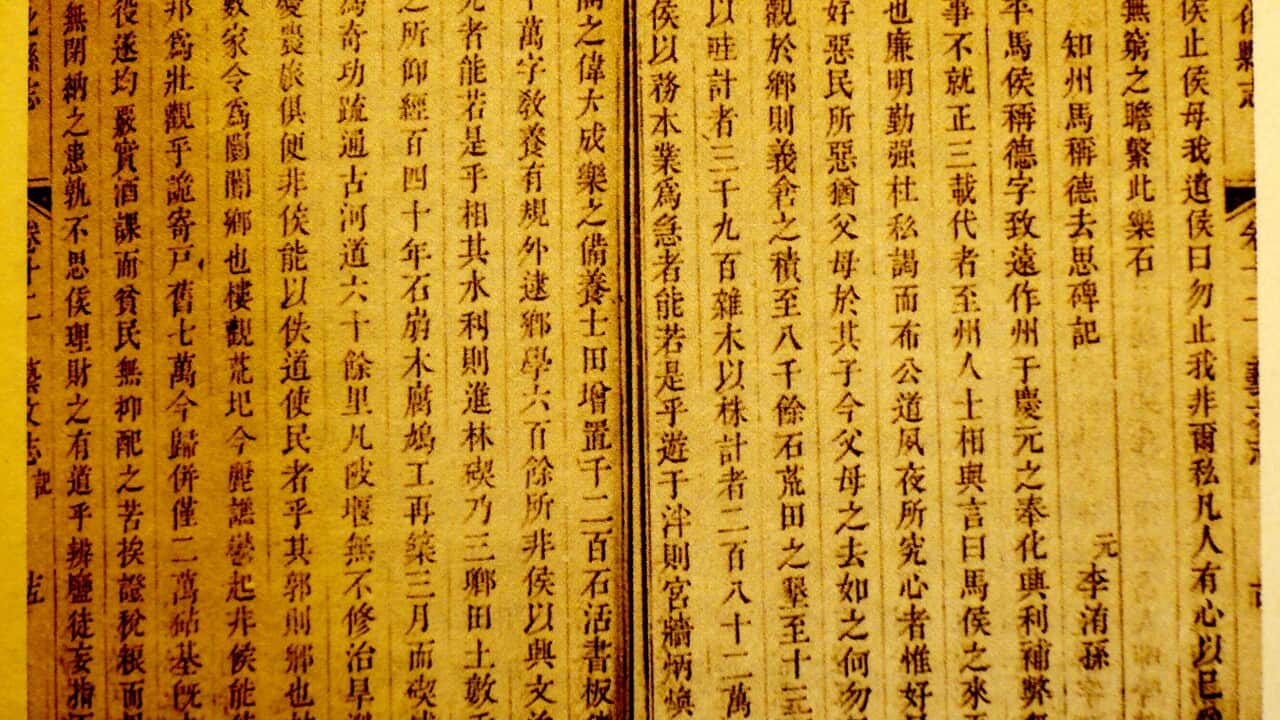 侯止侯母我遺侯曰勿止我非爾私凡人有心以己
無窮之瞻繫此樂石
知州馬稱德去思碑記
元 李洧孫
平馬侯稱德字致遠作州于慶元之奉化興利補弊
事不就正三載代者至州人士相與言曰馬侯之來
也廉明勤强杜私謁而布公道夙夜所究心者惟好
好惡民所惡猶父母於其子今父母之去如之何勿
觀於鄉則義倉之積至八千餘石荒田之墾至十三
以畦計者三千九百雜木以株計者二百八十二萬
侯以務本業爲急者能若是乎遊于泮則宮牆炳煥
之偉大成樂之備養士田增置千二百石活書板
萬字敎養有規外逮鄉學六百餘所非侯以興文
者能若是乎相其水利則進林碶乃三鄉田土數
之所仰經百四十年石崩木腐鳩工再築三月而碶
爲奇功䟽通古河道六十餘里凡陂堰無不修治旱
喪旅俱便非侯能以佚道使民者乎其郭則鄉也
數家令爲闤闠鄉也樓觀荒圯今麗譙鬱起非侯能
邦爲壯觀乎詭寄戸舊七萬今歸併僅二萬砧基旣
役遂均嚴實酒課而貧民無抑配之苦挨證稅糧而
無閉納之患孰不思侯理財之有道乎辨鹽徒妄指
卷十二 藝文志 記